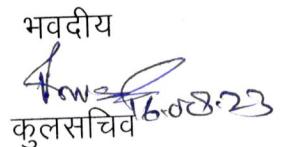 भवदीय
16.08.23
कुलसचिव